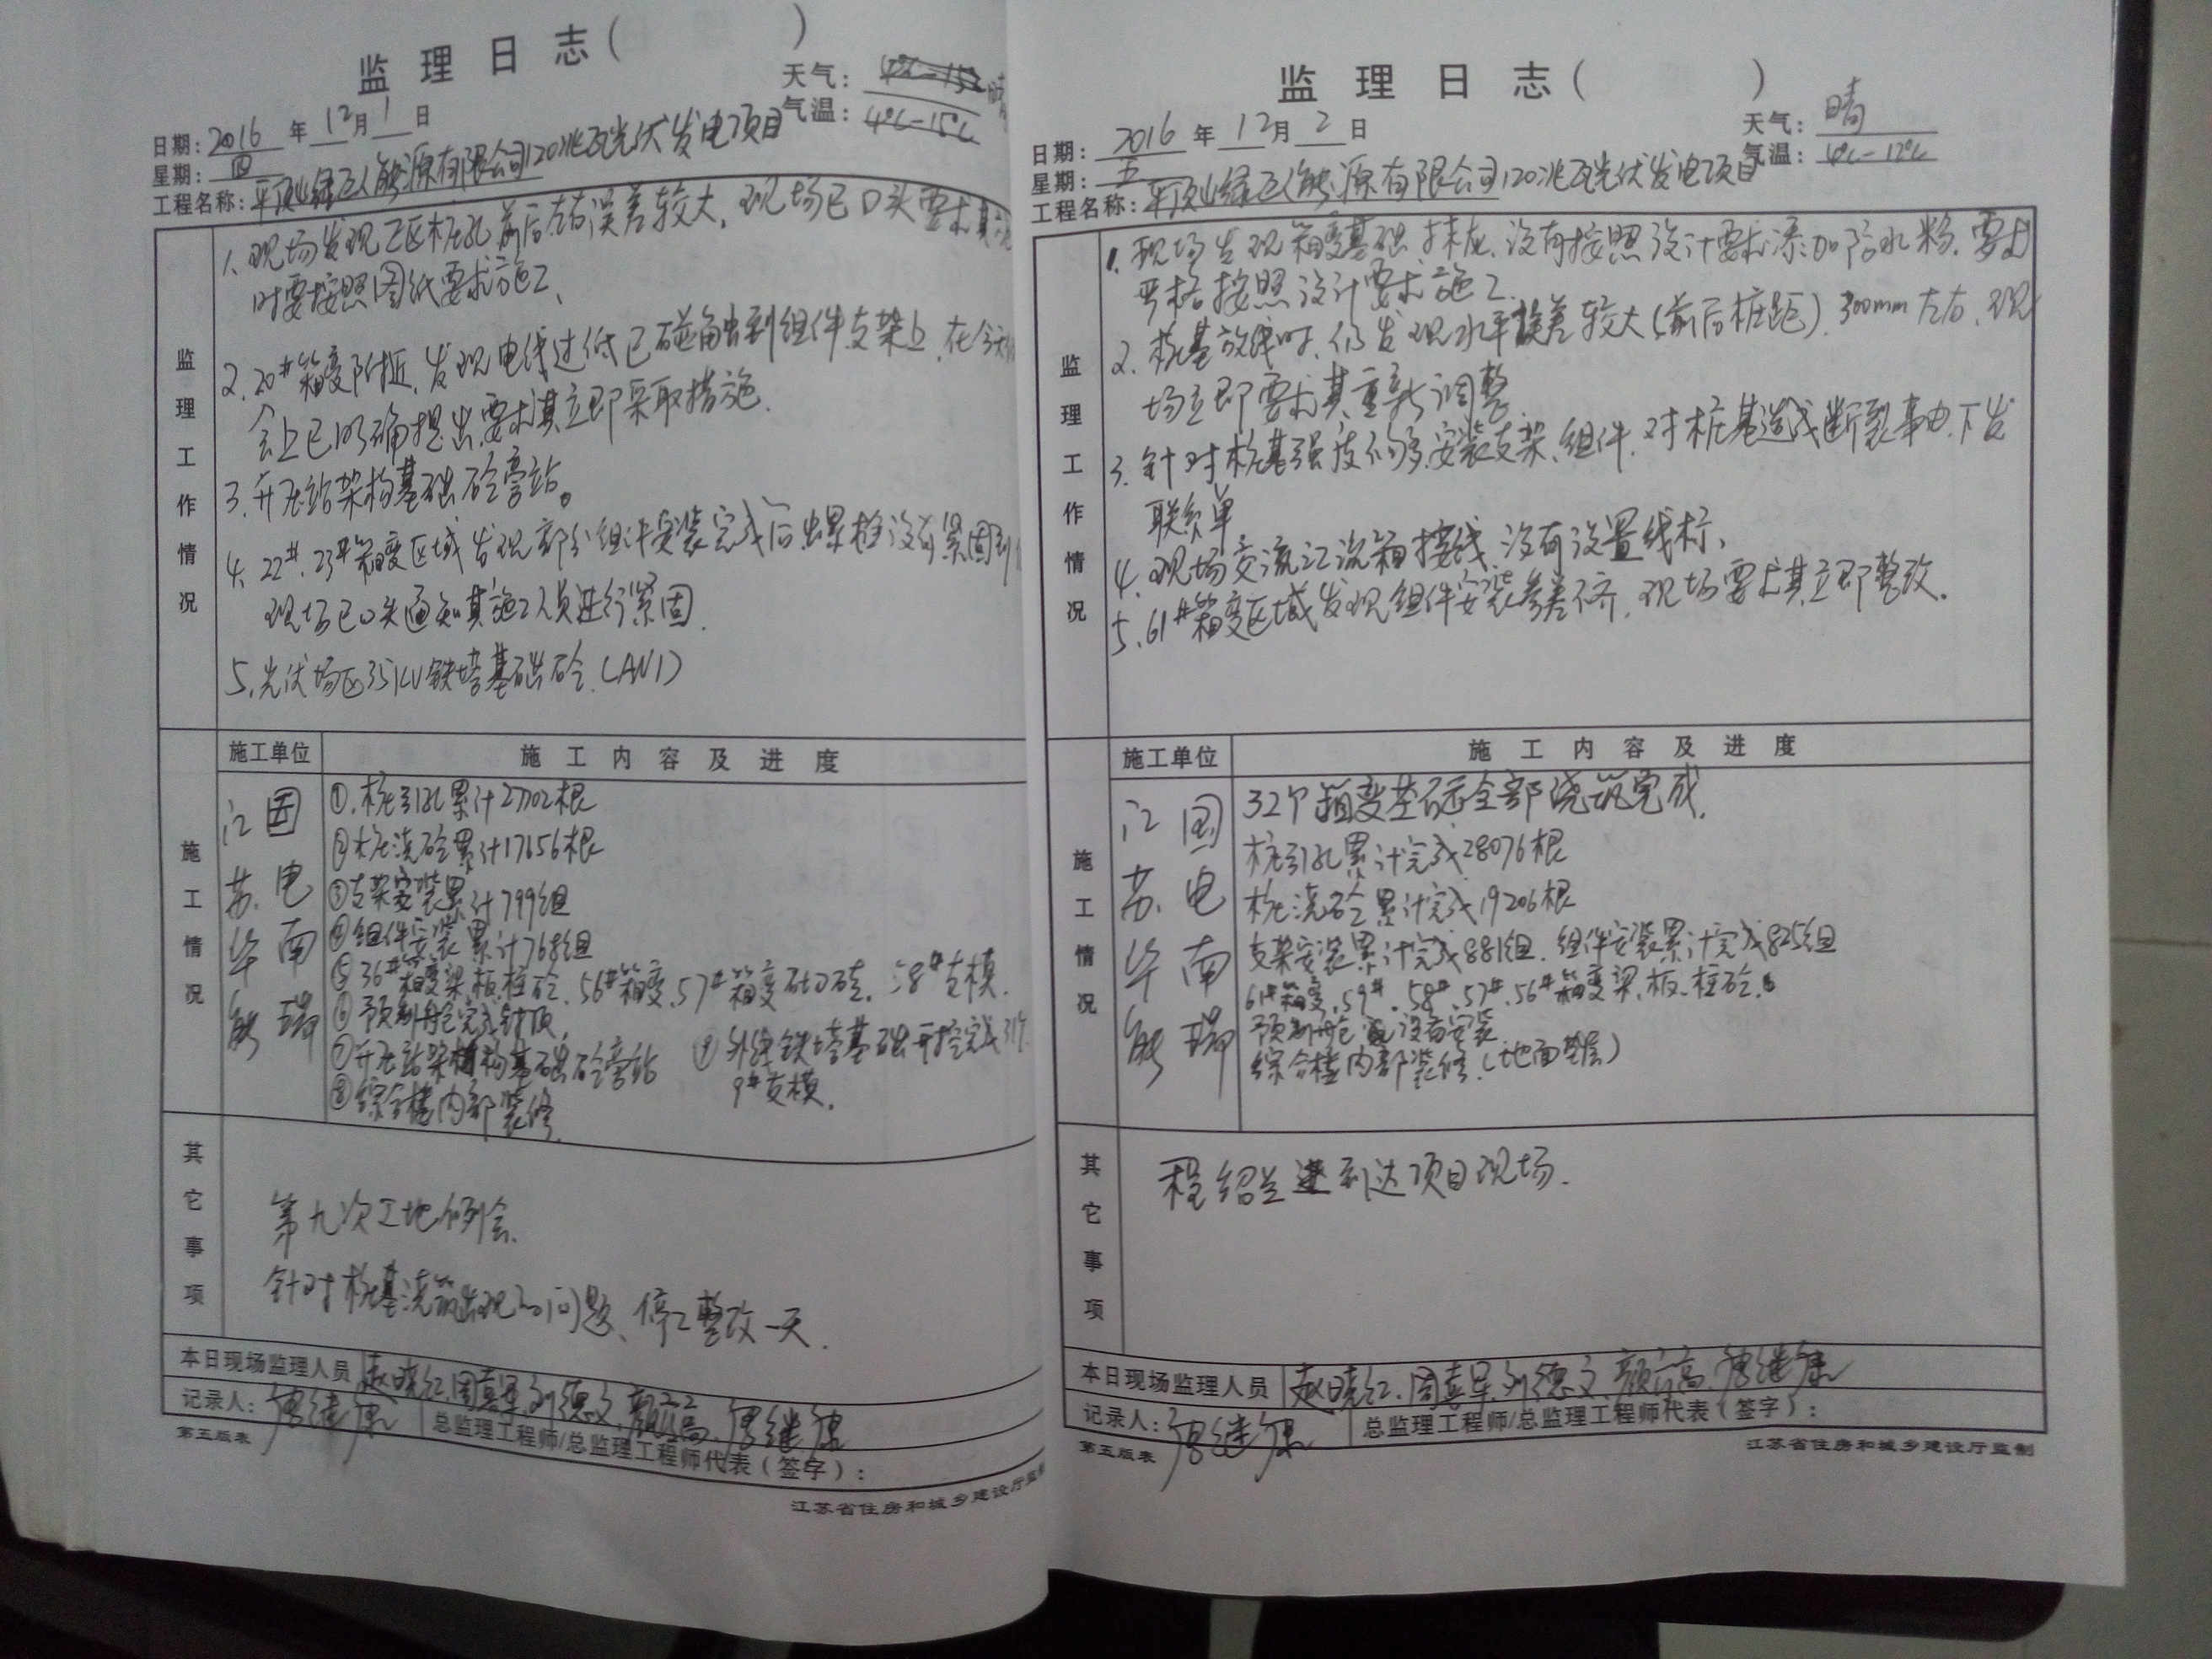 监理日志（ ）
天气：晴
日期：2016年12月1日
气温：4℃-15℃
星期：四
工程名称：平顶山绿巨人能源有限公司120兆瓦光伏发电项目
监理工作情况
1、现场发现工区桩孔前后左右误差较大，现场已口头要求其
时要按照图纸要求施工、
2、20#箱变附近，发现电线过低已碰触到组件支架上，在今天
会上已明确提出要求其立即采取措施．
3、升压站架构基础砼旁站。
4、22#、23#箱变区域发现部分组件安装完成后螺栓没有紧固到
现场已口头通知其施工人员进行紧固．
5、光伏场区35KV铁塔基础砼．（AN1）
施工单位 施工内容及进度
施工情况
江苏华能 国电南瑞
①．桩引孔累计27702根
②桩浇砼累计17656根
③支架安装累计799组
④组件安装累计768组
⑤36#箱变梁板柱砼．56#箱变、57#箱变砌砖．58#支模．
⑥预制舱完成封顶．
⑦升压站架构基础砼旁站 ⑨外线铁塔基础开挖完成31个
⑧综合楼内部装修． 9#支模．
其它事项
第九次工地例会．
针对桩基浇筑出现的问题、停工整改一天．
本日现场监理人员 赵晓红．周喜军．刘德文．颜高．唐继康
记录人：唐继康 总监理工程师/总监理工程师代表（签字）：
第五版表 江苏省住房和城乡建设厅监制
监理日志（ ）
天气：晴
日期：2016年12月2日
气温：4℃-12℃
星期：五
工程名称：平顶山绿巨人能源有限公司120兆瓦光伏发电项目
监理工作情况
1．现场发现箱变基础抹灰．没有按照设计要求添加防水粉．要求
严格按照设计要求施工．
2．桩基放线时、仍发现水平误差较大（前后桩距）．300mm左右、现
场立即要求其重新调整
3．针对桩基强度不够．安装支架、组件．对桩基造成断裂事由．下发
联系单．
4．现场交流汇流箱接线．没有设置线标、
5、61#箱变区域发现组件安装参差不齐．现场要求其立即整改．
施工单位 施工内容及进度
施工情况
江苏华能 国电南瑞
32个箱变基础全部浇筑完成．
桩引孔累计完成28076根
桩浇砼累计完成19206根
支架安装累计完成881组．组件安装累计完成825组
61#箱变、59#．58#．57#．56#箱变梁、板、柱砼．
预制舱设备安装
综合楼内部装修．（地面垫层）
其它事项
程绍兰到达项目现场．
本日现场监理人员 赵晓红．周喜军．刘德文．颜高．唐继康
记录人：唐继康 总监理工程师/总监理工程师代表（签字）：
第五版表 江苏省住房和城乡建设厅监制